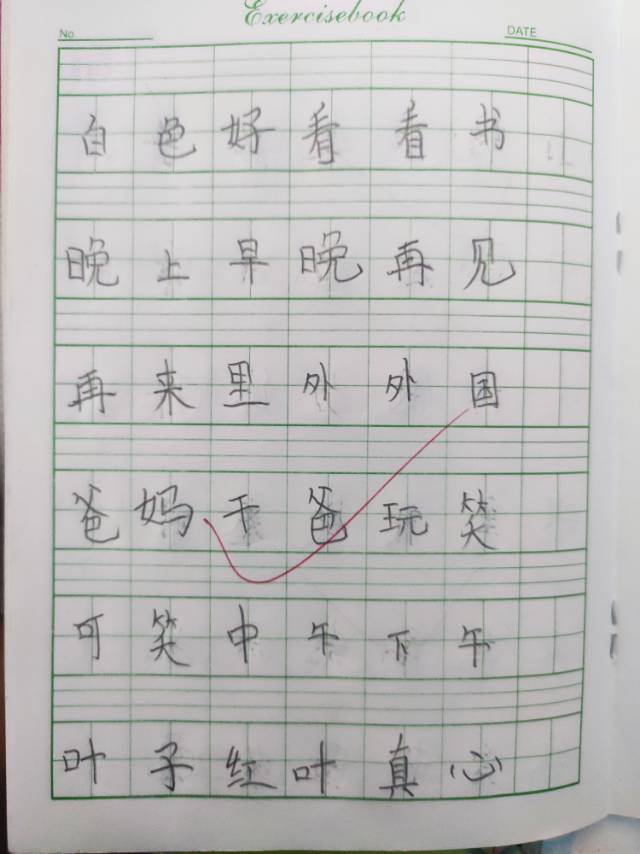 Exercisebook
No. DATE
白色好看看书
晚上早晚再见
再来里外外国
爸妈干爸玩笑
可笑中午下午
叶子红叶真心